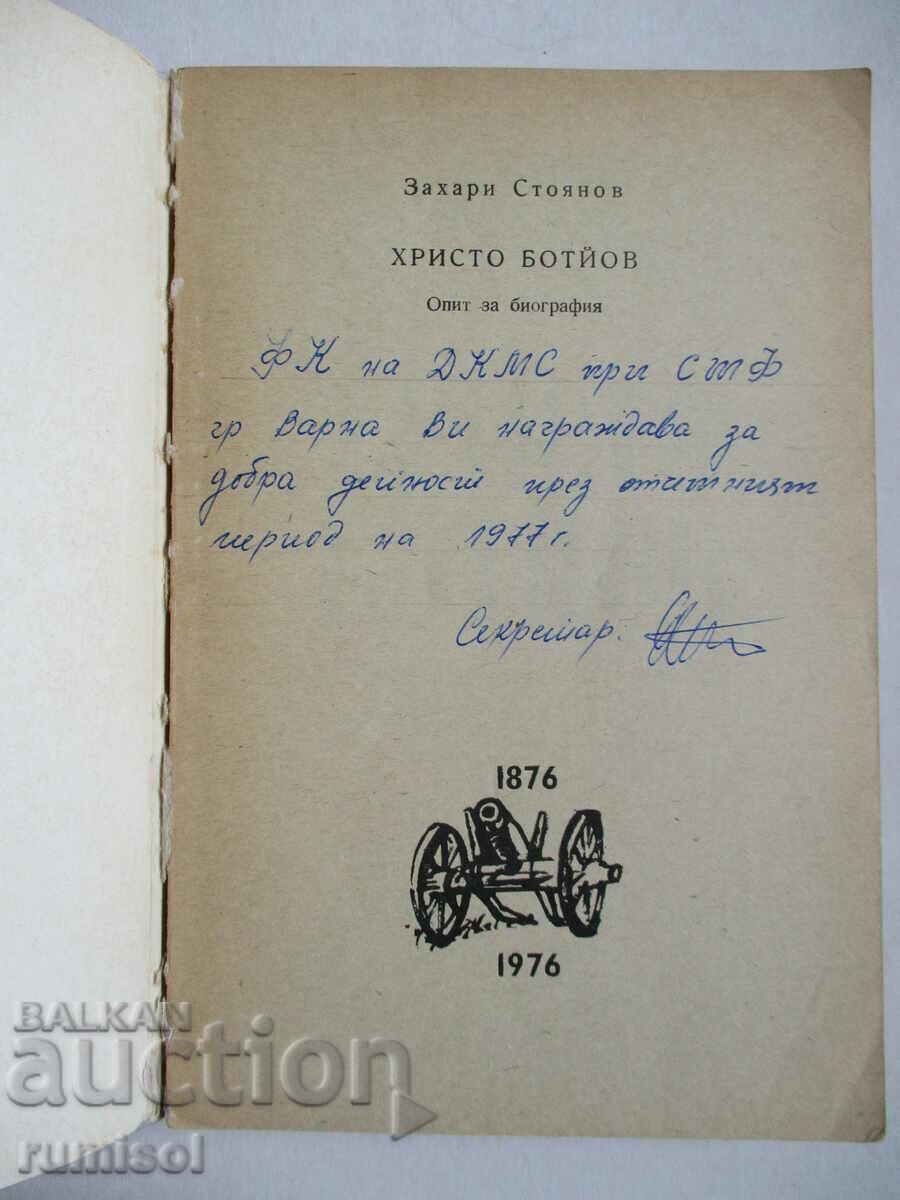 Захари Стоянов
ХРИСТО БОТЙОВ
Опит за биография
ФК на ДКМС при СМФ
гр Варна Ви награждава за
добра дейност през отчетният
период на 1977 г.
Секретар:
1876
1976
BALKAN
auction
rumisol